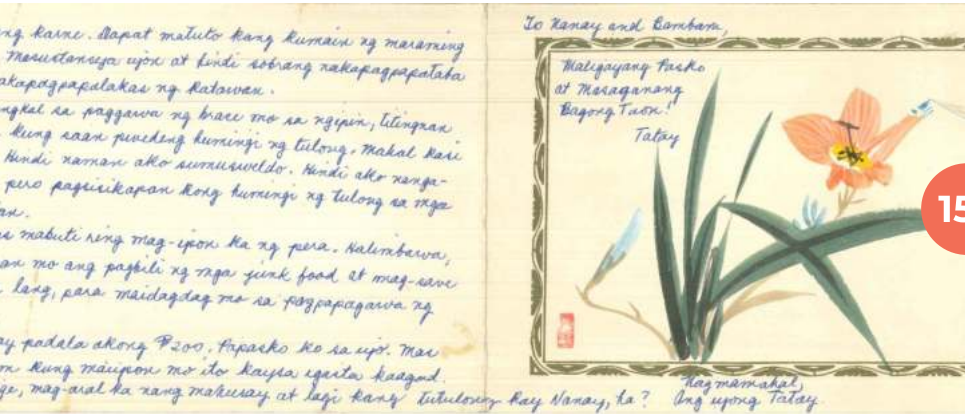 ng karne. Dapat matuto kang kumain ng maraming
masustansya iyon at hindi sobrang nakapagpapataba
akapagpapalakas ng katawan.
ngkal sa paggawa ng brace mo sa ngipin, titingnan
kung saan puwedeng humingi ng tulong. Mahal kasi
Hindi naman ako sumusweldo. Hindi ako nanga-
pero pagsisikapan kong humingi ng tulong sa mga
an.
s mabuti ring mag-ipon ka ng pera. Halimbawa,
an mo ang pagbili ng mga junk food at mag-save
lang, para maidagdag mo sa pagpapagawa ng
ay padala akong ₱200, Papasko ko sa iyo. Mas
n kung maipon mo ito kaysa igasta kaagad.
ge, mag-aral ka nang mahusay at lagi kang tutulong kay Nanay, ha?
To Nanay and Bambam,
Maligayang Pasko
at Masaganang
Bagong Taon!
Tatay
Nagmamahal,
Ang iyong Tatay
15